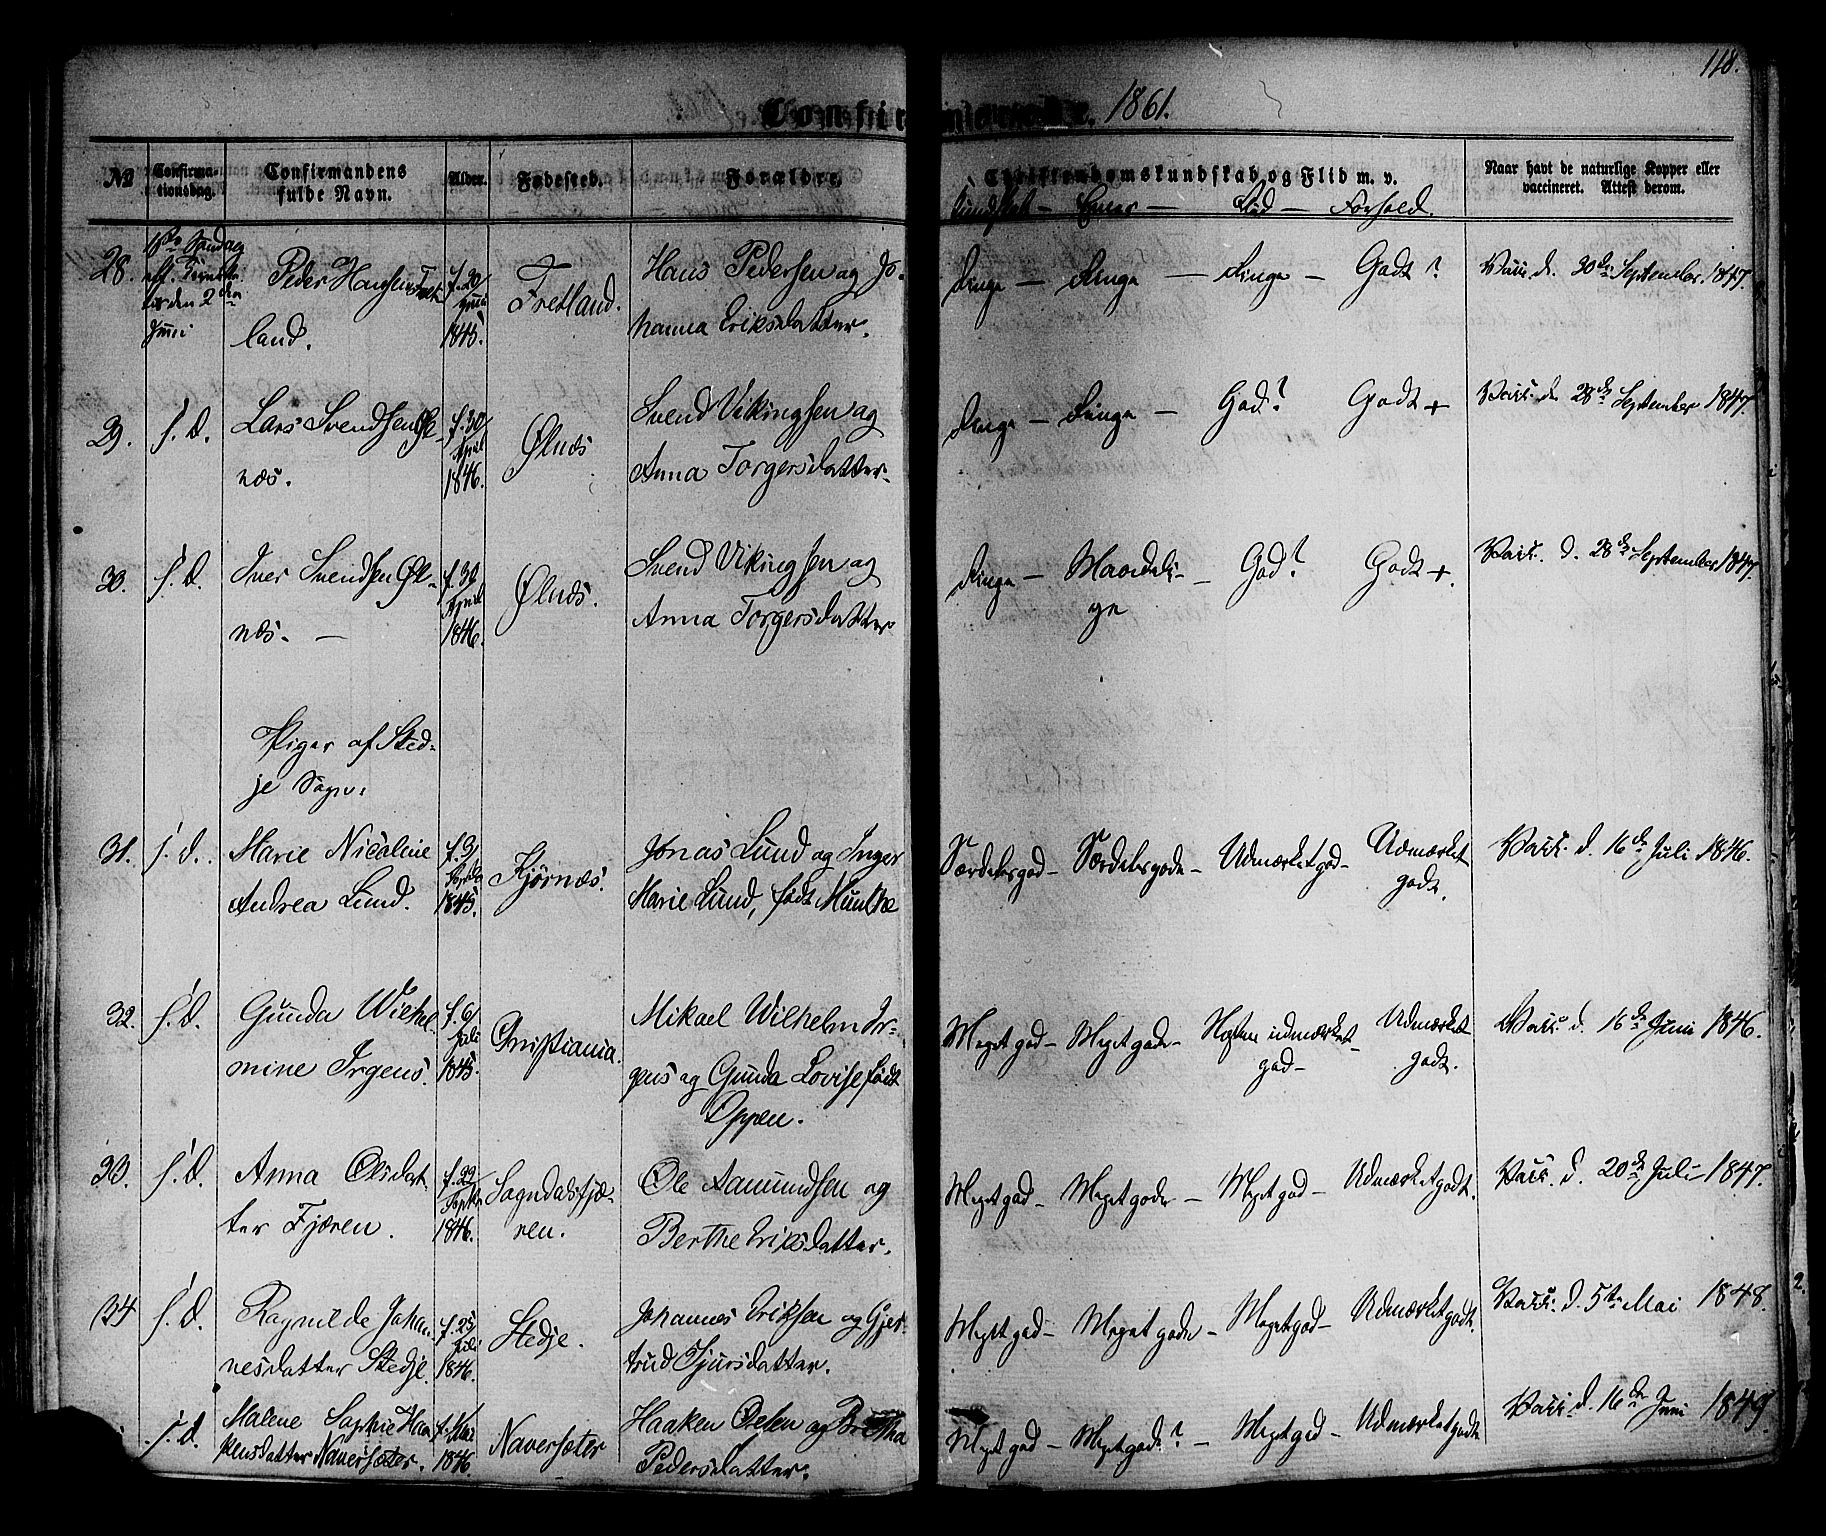 118.
Confirmerede. 1861.
№
Confirma-
tionsdag.
Confirmandens
fulde Navn.
Alder.
Fødested.
Forældre.
Christendomskundskab og Flid m. v.
Kundskab — Evner — Flid — Forhold.
Naar havt de naturlige Kopper eller
vaccineret. Attest derom.
28.
1ste Søndag
eft. Trinita-
tis den 2den
Juni
Peder Hansen Fret-
land.
f. 20
Juni
1845.
Fretland.
Hans Pedersen og Jo-
hanna Eriksdatter.
Ringe — Ringe — Ringe — Godt?
Vacc. d. 30de September 1847.
29.
s. d.
Lars Svendsen Øl-
næs.
f. 30
April
1846.
Ølnæs
Svend Vikingsen og
Anna Torgersdatter.
Ringe — Ringe — God? Godt +
Vacc. d. 28de September 1847.
30.
s. d.
Iver Svendsen Øl-
næs. —
f. 30
April
1846.
Ølnæs.
Svend Vikingsen og
Anna Torgersdatter
Ringe — Maadeli- — God? Godt +.
ge
Vacc. d. 28de September 1847.
Piger af Sted-
je Sogn.
31.
s. d.
Marie Nicoline
Andrea Lund.
f. 3
1845.
Kjørnæs.
Jonas Lund og Inger
Marie Lund, født Munthe
Særdeles god — Særdeles gode — Udmærket god — Udmærket
godt.
Vacc. d. 16de Juli 1846.
32.
s. d.
Gunda Wilhel-
mine Irgens.
f. 6
Juli
1845.
Christiania.
Mikael Wilhelm Ir-
gens og Gunda Lovise født
Oppen.
Meget god — Meget gode — Næsten udmærket Udmærket
god — godt.
Vacc. d. 16de Juni 1846.
33.
s. d.
Anna Olsdat-
ter Fjæren.
f. 22
Septbr
1846.
Sogndalsfjæ-
ren.
Ole Aamundsen og
Berthe Eriksdatter.
Meget god — Meget gode — Meget god — Udmærket godt.
Vacc. d. 20de Juli 1847.
34
s. d.
Ragnilde Johan-
nesdatter Stedje.
f. 25
Juli
1846.
Stedje.
Johannes Eriksen og Gjer-
trud Tjursdatter.
Meget god — Meget gode — Meget god — Udmærket godt.
Vacc. d. 5te Mai 1848.
s. d.
Malene Sophie Haa-
kensdatter Naversæter.
1846.
Naversæter
Haaken Oelen og Bretha
Pedersdatter.
Meget god — Meget gode? — Meget god — Udmærket godt
Vacc. d. 16de Juni 1849.